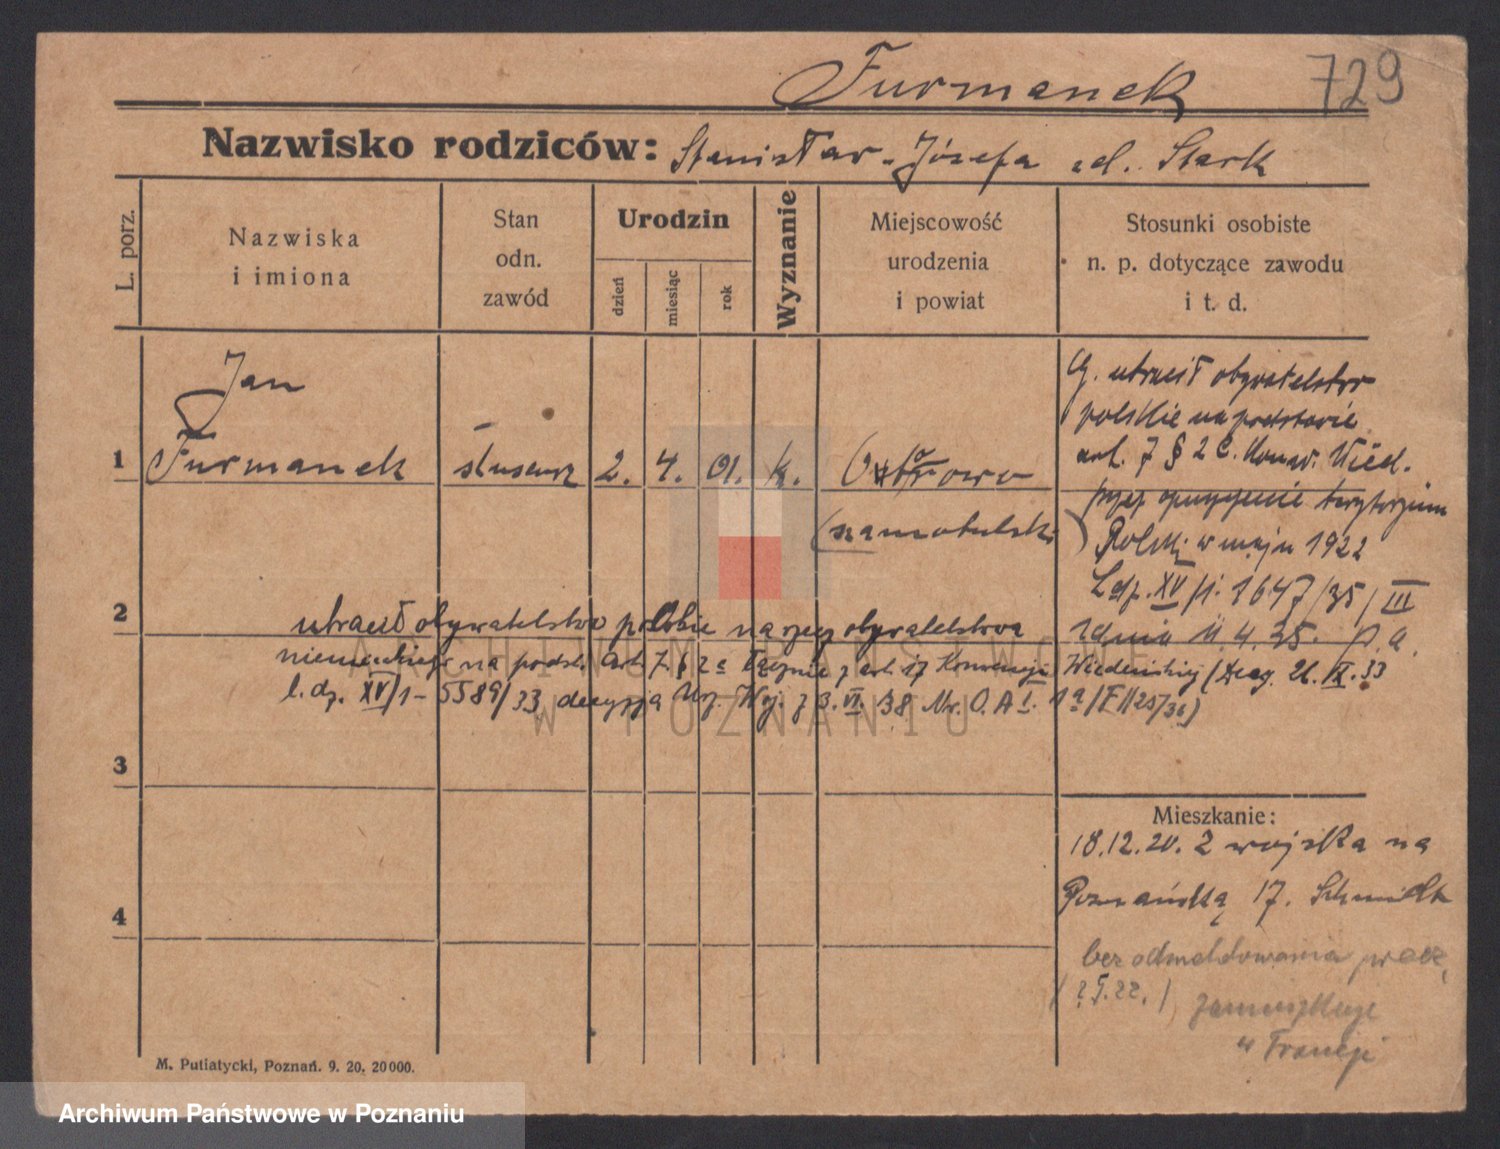 Furmanek
729
Nazwisko rodziców: Stanisław - Józefa Stark
L. porz.
Nazwiska
i imiona
Stan
odn.
zawód
Urodzin
dzień
miesiąc
rok
Wyznanie
Miejscowość
urodzenia
i powiat
Stosunki osobiste
n. p. dotyczące zawodu
i t. d.
1
Jan
Furmanek
ślusarz
2.
4.
01.
k.
Ostrowo
(szamotulski)
G. utracił obywatelstwo
polskie na podstawie
art. 7 § 2 c. Konw. Wied.
przez opuszczenie terytorjum
Polski w maju 1922
L.dz. XV/1. 1647/35/III
z dnia 11.4.35. p.a.
2
utracił obywatelstwo polskie na rzecz obywatelstwa
niemieckiego na podst. art. 7 § 2 a łącznie z art. 17 Konwencji Wiedeńskiej (
l. dz. XV/1- 5589/33 decyzja Urz. Woj. z 3. VI. 38 Nr. O. A I. 1a/F/125/36)
3
Mieszkanie:
18.12.20. z wojska na
Poznańską 17. Schmidt
4
bez odmeldowania precz,
zamieszkuje
w Francji
M. Putiatycki, Poznań. 9. 20. 20000.
ARCHIWUM PAŃSTWOWE
W POZNANIU
Archiwum Państwowe w Poznaniu